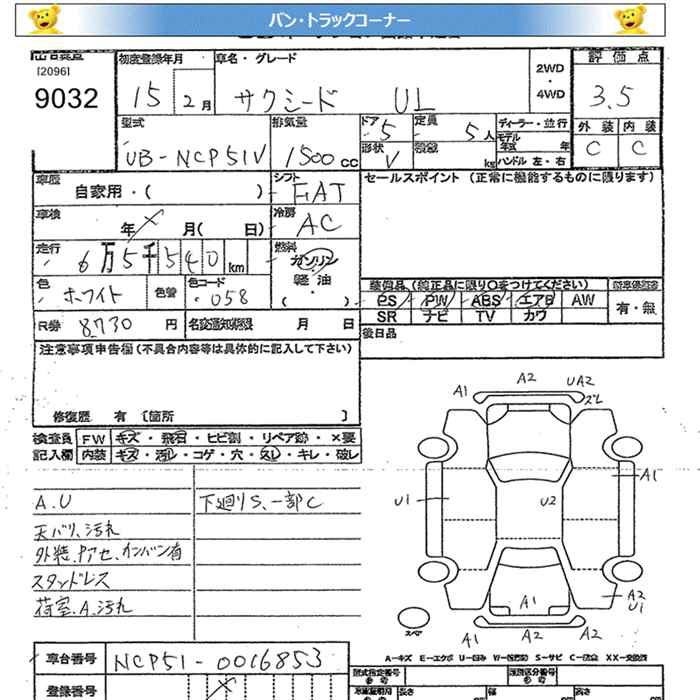 バン・トラックコーナー
[2096]
9032
初度登録年月
15 2月
車名・グレード
サクシード UL
2WD
・
4WD
評価点
3.5
外装 内装
C C
型式
UB-NCP51V
排気量
1500 cc
ドア 5
形状 V
定員 5人
kg
ディーラー・並行
モデル
年式 年
ハンドル 左・右
車歴
自家用・( )
シフト
FAT
車検
年 × 月( 日)
冷房
AC
走行
6万5千540 km
燃料
ガソリン
軽油
・( )
色
ホワイト
色替
色コード
・058
R券 8730 円
名変通知期限 月 日
セールスポイント (正常に機能するものに限ります)
装備品 (純正品に限り○をつけてください)
PS PW ABS エアB AW
SR ナビ TV カワ
有・無
後日品
注意事項申告欄(不具合内容等は具体的に記入して下さい)
修復歴 有 [箇所 ]
検査員 FW キズ・飛石・ヒビ割・リペア跡・×要
記入欄 内装 キズ・汚れ・コゲ・穴・スレ・キレ・破レ
A.U
下廻りS、一部C
天バリ、汚れ
スタッドレス
荷室.A.汚れ
A1 A2 UA2
ズレ
A1
U1
U2
A1
A2
U1
スペア
A1 A2 A2
A-キズ E-エクボ U-凹み W-補修跡 S-サビ C-腐食 XX-交換済
車台番号
NCP51-0016853
登録番号
×
型式指定番号
類別区分番号
長さ
幅
高さ